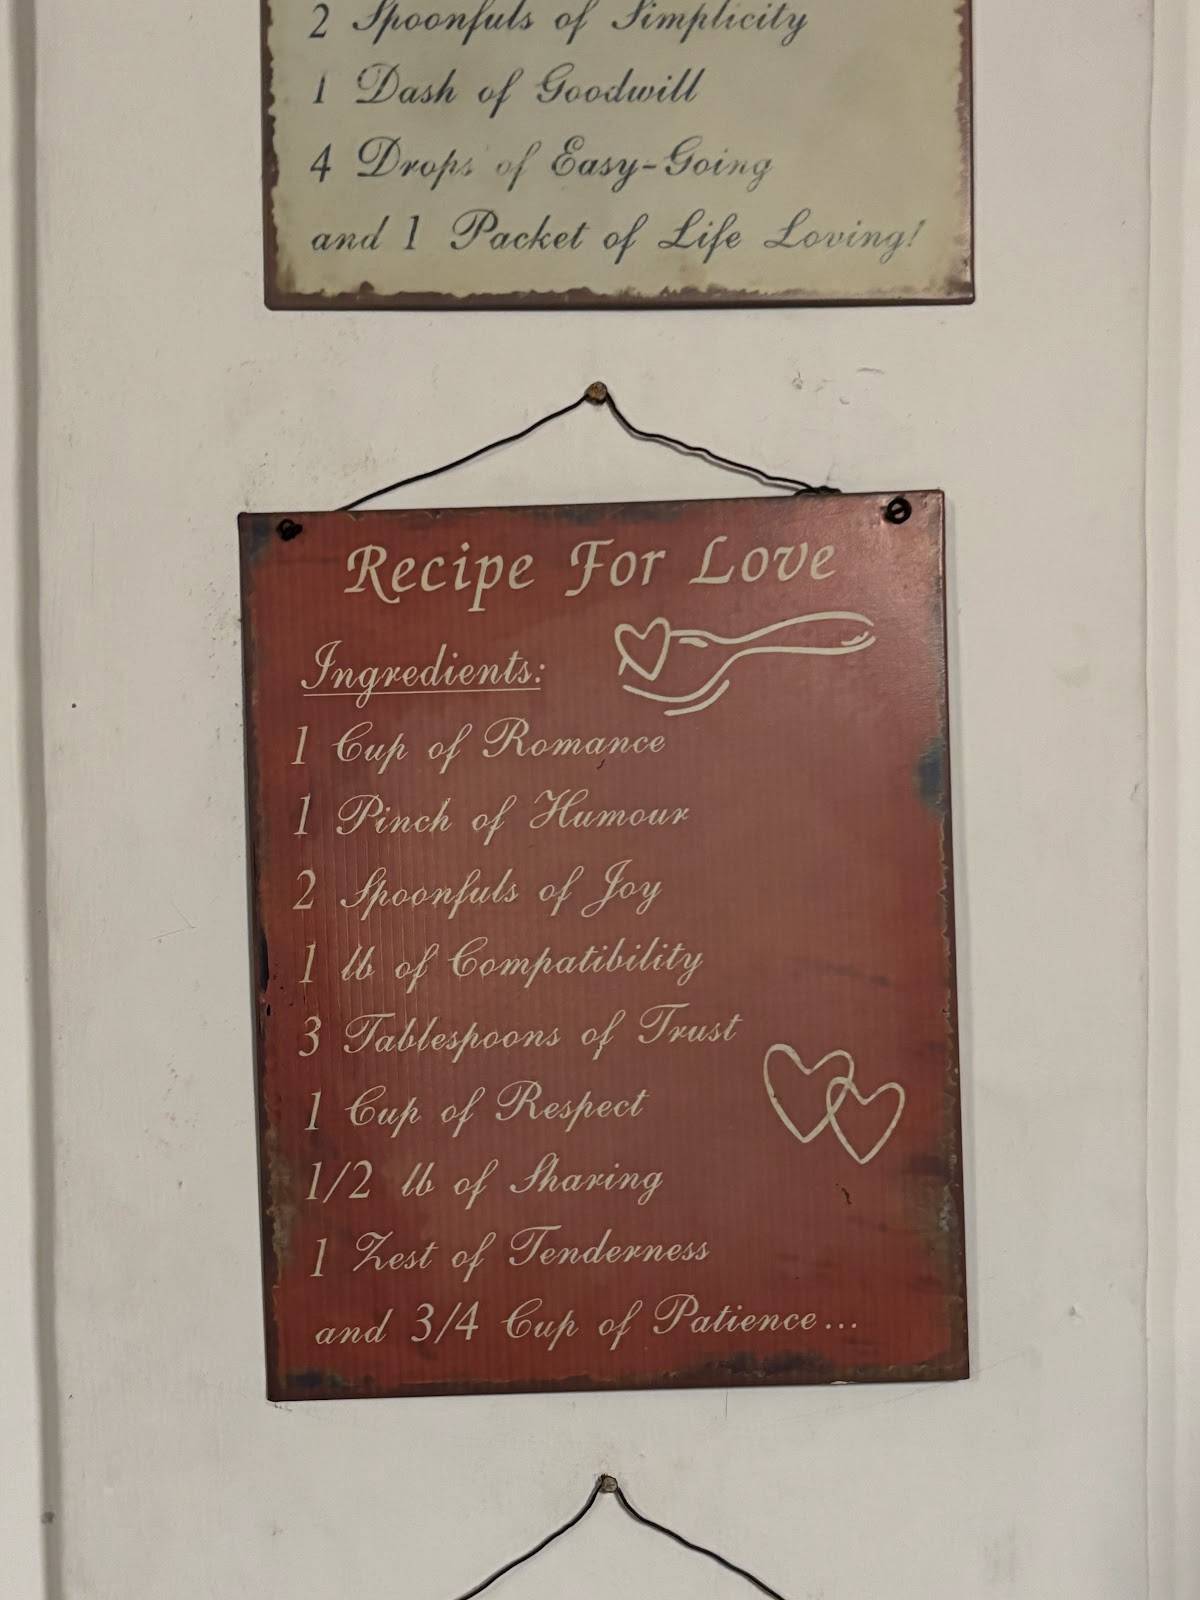 2 Spoonfuls of Simplicity
1 Dash of Goodwill
4 Drops of Easy-Going
and 1 Packet of Life Loving!
Recipe For Love
Ingredients:
1 Cup of Romance
1 Pinch of Humour
2 Spoonfuls of Joy
1 lb of Compatibility
3 Tablespoons of Trust
1 Cup of Respect
1/2 lb of Sharing
1 Zest of Tenderness
and 3/4 Cup of Patience...